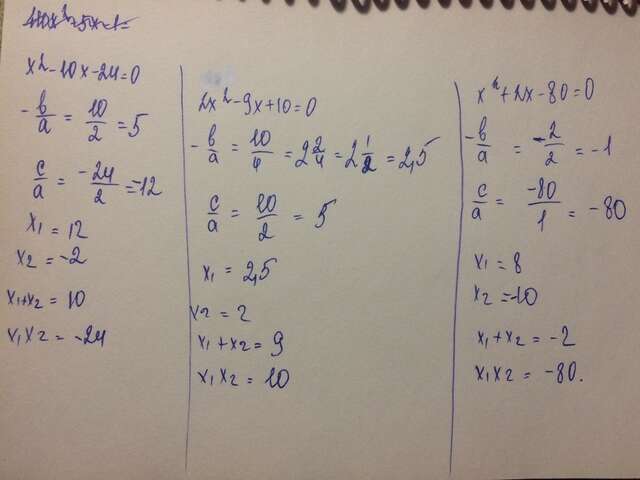 x² - 10x - 24 = 0
- b/a = 10/2 = 5
c/a = -24/2 = -12
x₁ = 12
x₂ = -2
x₁+x₂ = 10
x₁x₂ = -24
2x² - 9x + 10 = 0
- b/a = 10/4 = 2 2/4 = 2 1/2 = 2,5
c/a = 10/2 = 5
x₁ = 2,5
x₂ = 2
x₁ + x₂ = 9
x₁x₂ = 10
x² + 2x - 80 = 0
- b/a = -2/2 = -1
c/a = -80/1 = -80
x₁ = 8
x₂ = -10
x₁ + x₂ = -2
x₁x₂ = -80.